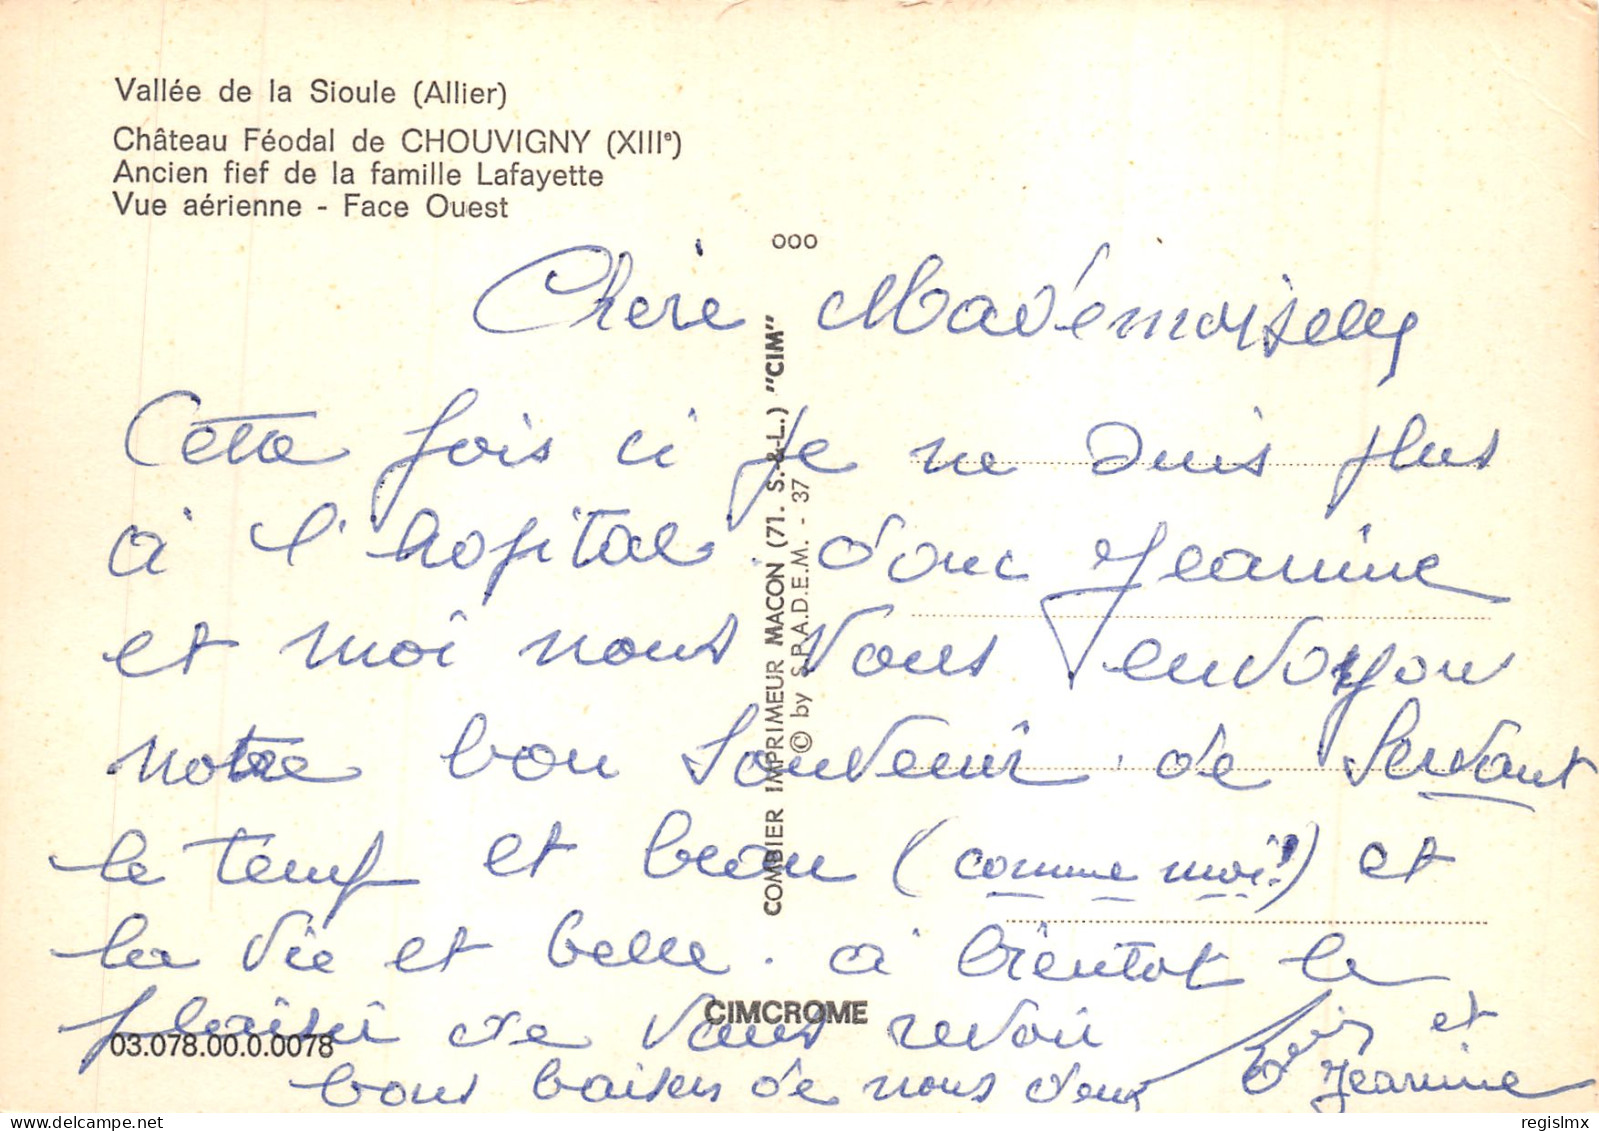 Vallée de la Sioule (Allier)
Château Féodal de CHOUVIGNY (XIIIᵉ)
Ancien fief de la famille Lafayette
Vue aérienne - Face Ouest
000
Chère Mademoiselle,
Cette fois ci je ne suis plus
à l'hopital. donc Jeanine
et moi nous vous envoyons
notre bon souvenir de Servant
le temps et beau (comme moi!) et
la vie et belle. à bientot le
plaisir de vous revoir
bons baisers de nous deux
et
Jeanine
COMBIER IMPRIMEUR MACON (71. S.-&-L.) "CIM"
© by S.P.A.D.E.M. - 37
CIMCROME
03.078.00.0.0078
regislmx